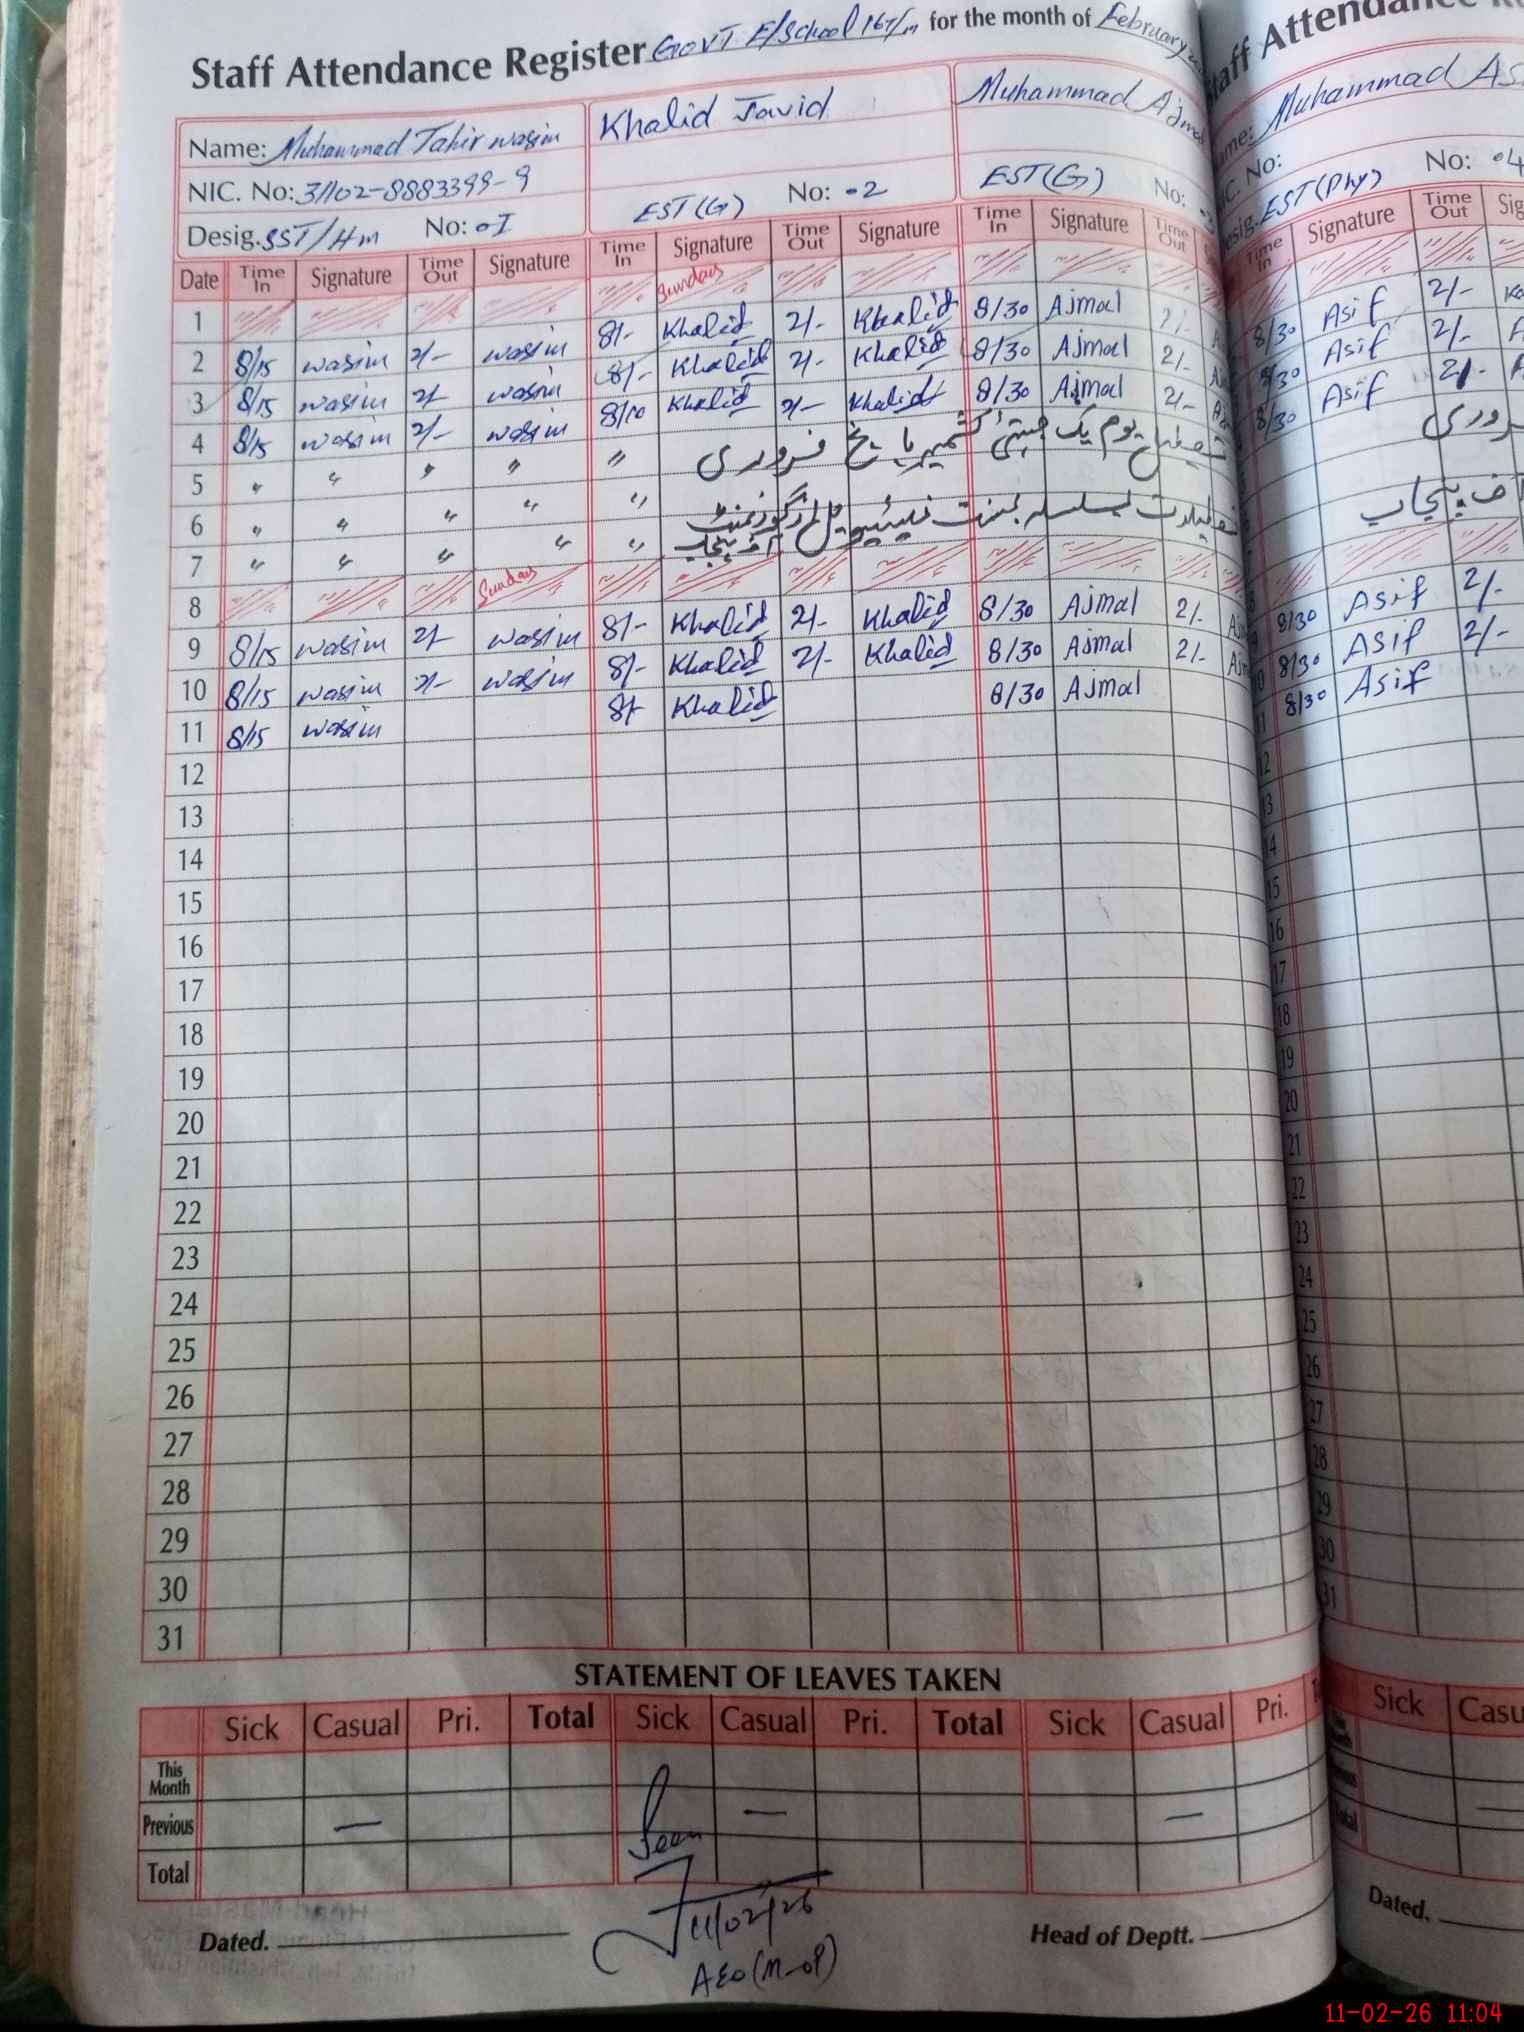 Staff Attendance Register GOVT E/School 167/m for the month of February
Name: Muhammad Tahir wasim Khalid Javid Muhammad Ajmal
NIC. No: 31102-8883399-9
Desig. SST/Hm No: 01 EST(G) No: 02 EST(G) No:
Date Time In Signature Time Out Signature Time In Signature Time Out Signature Time In Signature Time Out
1 Sunday
2 8/15 wasim 2/- wasim 8/- Khalid 2/- Khalid 8/30 Ajmal 2/-
3 8/15 wasim 2/- wasim 8/- Khalid 2/- Khalid 8/30 Ajmal 2/-
4 8/15 wasim 2/- wasim 8/10 Khalid 2/- Khalid 8/30 Ajmal 2/-
5 " " " " " تعطیل یوم یک جہتی کشمیر تاریخ فروری
6 " " " " "
7 " " " " " آف پنجاب
8 Sunday
9 8/15 wasim 2/- wasim 8/- Khalid 2/- Khalid 8/30 Ajmal 2/-
10 8/15 wasim 2/- wasim 8/- Khalid 2/- Khalid 8/30 Ajmal 2/-
11 8/15 wasim 8/- Khalid 8/30 Ajmal
12
13
14
15
16
17
18
19
20
21
22
23
24
25
26
27
28
29
30
31
STATEMENT OF LEAVES TAKEN
Sick Casual Pri. Total Sick Casual Pri. Total Sick Casual Pri.
This Month
Previous — — —
Total
Seen
11/02/26
AEO (M-OP)
Dated. Head of Deptt.
Staff Attendance
Name: Muhammad
NIC. No:
Desig. EST(Phy) No: 04
Time In Signature Time Out
8/30 Asif 2/-
8/30 Asif 2/-
8/30 Asif 2/-
آف پنجاب
8/30 Asif 2/-
8/30 Asif 2/-
8/30 Asif
12
13
14
15
16
17
18
19
20
21
22
23
24
25
26
27
28
29
30
31
Sick
Total
Dated.
11-02-26 11:04